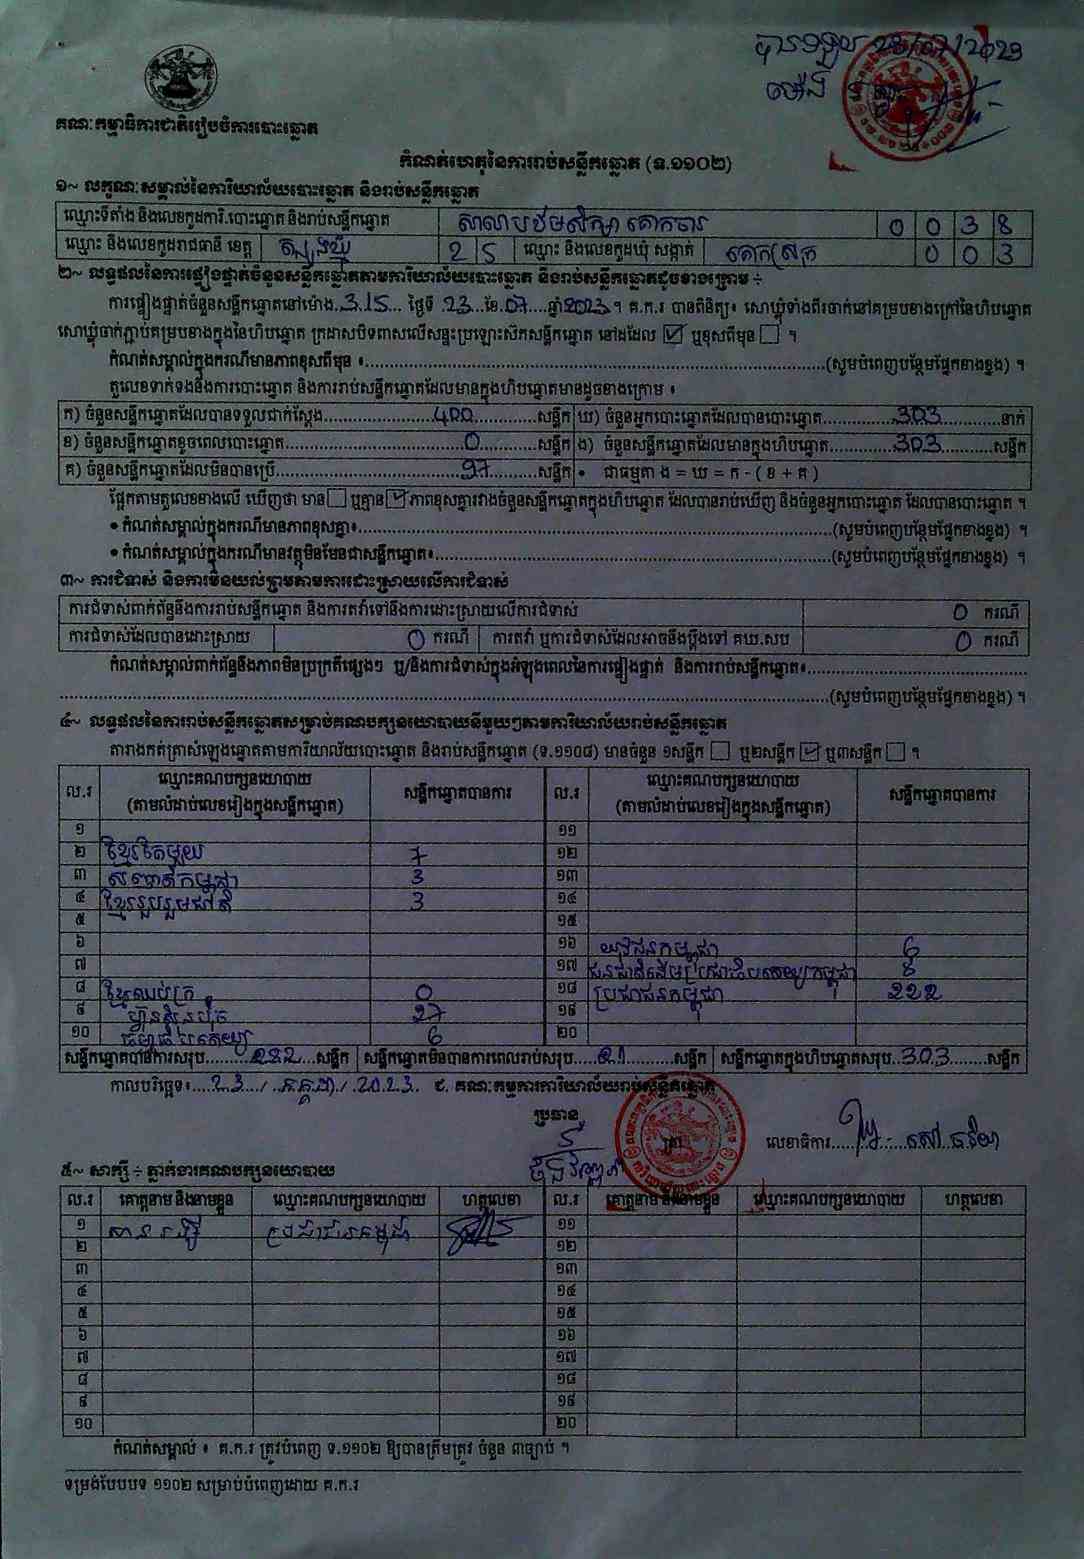 បានទទួល 23/07/2023
ម៉ោង
គណៈកម្មាធិការជាតិរៀបចំការបោះឆ្នោត
កំណត់ហេតុនៃការរាប់សន្លឹកឆ្នោត (ទ.១១០២)
១~ លក្ខណៈសម្គាល់នៃការិយាល័យបោះឆ្នោត និងរាប់សន្លឹកឆ្នោត
ឈ្មោះទីតាំង និងលេខកូដការិ.បោះឆ្នោត និងរាប់សន្លឹកឆ្នោត សាលាបឋមសិក្សា គោកចារ 0 0 3 8
ឈ្មោះ និងលេខកូដរាជធានី ខេត្ត ត្បូងឃ្មុំ 2 5 ឈ្មោះ និងលេខកូដឃុំ សង្កាត់ គោកស្រុក 0 0 3
២~ លទ្ធផលនៃការផ្ទៀងផ្ទាត់ចំនួនសន្លឹកឆ្នោតតាមការិយាល័យបោះឆ្នោត និងរាប់សន្លឹកឆ្នោតដូចខាងក្រោម ÷
ការផ្ទៀងផ្ទាត់ចំនួនសន្លឹកឆ្នោតនៅម៉ោង 3:15 ថ្ងៃទី 23 ខែ 07 ឆ្នាំ 2023 ។ គ.ក.រ បានពិនិត្យ៖ សោឃ្លុំទាំងពីរចាក់នៅគម្របខាងក្រៅនៃហិបឆ្នោត
សោឃ្លុំចាក់ភ្ជាប់គម្របខាងក្នុងនៃហិបឆ្នោត ក្រដាសបិទពាសលើសន្ទះប្រឡោះស៊កសន្លឹកឆ្នោត នៅដដែល ☑ ឬខុសពីមុន ☐ ។
កំណត់សម្គាល់ក្នុងករណីមានភាពខុសពីមុន ៖ (សូមបំពេញបន្ថែមផ្នែកខាងខ្នង) ។
តួលេខទាក់ទងនឹងការបោះឆ្នោត និងការរាប់សន្លឹកឆ្នោតដែលមានក្នុងហិបឆ្នោតមានដូចខាងក្រោម ៖
ក) ចំនួនសន្លឹកឆ្នោតដែលបានទទួលជាក់ស្ដែង 400 សន្លឹក ឃ) ចំនួនអ្នកបោះឆ្នោតដែលបានបោះឆ្នោត 303 នាក់
ខ) ចំនួនសន្លឹកឆ្នោតខូចពេលបោះឆ្នោត 0 សន្លឹក ង) ចំនួនសន្លឹកឆ្នោតដែលមានក្នុងហិបឆ្នោត 303 សន្លឹក
គ) ចំនួនសន្លឹកឆ្នោតដែលមិនបានប្រើ 97 សន្លឹក • ជាធម្មតា ង = ឃ = ក - ( ខ + គ )
ផ្អែកតាមតួលេខខាងលើ ឃើញថា មាន ☐ ឬគ្មាន ☑ ភាពខុសគ្នារវាងចំនួនសន្លឹកឆ្នោតក្នុងហិបឆ្នោត ដែលបានរាប់ឃើញ និងចំនួនអ្នកបោះឆ្នោត ដែលបានបោះឆ្នោត ។
• កំណត់សម្គាល់ក្នុងករណីមានភាពខុសគ្នា៖ (សូមបំពេញបន្ថែមផ្នែកខាងខ្នង) ។
• កំណត់សម្គាល់ក្នុងករណីមានវត្ថុមិនមែនជាសន្លឹកឆ្នោត៖ (សូមបំពេញបន្ថែមផ្នែកខាងខ្នង) ។
៣~ ការជំទាស់ និងការមិនយល់ព្រមតាមការដោះស្រាយលើការជំទាស់
ការជំទាស់ពាក់ព័ន្ធនឹងការរាប់សន្លឹកឆ្នោត និងការតវ៉ាទៅនឹងការដោះស្រាយលើការជំទាស់ 0 ករណី
ការជំទាស់ដែលបានដោះស្រាយ 0 ករណី ការតវ៉ា ឬការជំទាស់ដែលអាចនឹងប្ដឹងទៅ គឃ.សប 0 ករណី
កំណត់សម្គាល់ពាក់ព័ន្ធនឹងភាពមិនប្រក្រតីផ្សេងៗ ឬ/និងការជំទាស់ក្នុងអំឡុងពេលនៃការផ្ទៀងផ្ទាត់ និងការរាប់សន្លឹកឆ្នោត៖
(សូមបំពេញបន្ថែមផ្នែកខាងខ្នង) ។
៤~ លទ្ធផលនៃការរាប់សន្លឹកឆ្នោតសម្រាប់គណបក្សនយោបាយនីមួយៗតាមការិយាល័យរាប់សន្លឹកឆ្នោត
តារាងកត់ត្រាសំឡេងឆ្នោតតាមការិយាល័យបោះឆ្នោត និងរាប់សន្លឹកឆ្នោត (ទ.១១០៨) មានចំនួន ១សន្លឹក ☐ ឬ២សន្លឹក ☑ ឬ៣សន្លឹក ☐ ។
ល.រ ឈ្មោះគណបក្សនយោបាយ (តាមលំដាប់លេខរៀងក្នុងសន្លឹកឆ្នោត) សន្លឹកឆ្នោតបានការ ល.រ ឈ្មោះគណបក្សនយោបាយ (តាមលំដាប់លេខរៀងក្នុងសន្លឹកឆ្នោត) សន្លឹកឆ្នោតបានការ
១ ១១
២ ខ្មែរតែមួយ 7 ១២
៣ សញ្ជាតិកម្ពុជា 3 ១៣
៤ ខ្មែររួបរួមជាតិ 3 ១៤
៥ ១៥
៦ ១៦ យុវជនកម្ពុជា 6
៧ ១៧ ជនជាតិដើមប្រជាធិបតេយ្យកម្ពុជា 8
៨ ខ្មែរឈប់ក្រ 0 ១៨ ប្រជាជនកម្ពុជា 222
៩ ហ្វ៊ុនស៊ិនប៉ិច 27 ១៩
១០ ធម្មាធិបតេយ្យ 6 ២០
សន្លឹកឆ្នោតបានការសរុប 282 សន្លឹក សន្លឹកឆ្នោតមិនបានការពេលរាប់សរុប 21 សន្លឹក សន្លឹកឆ្នោតក្នុងហិបឆ្នោតសរុប 303 សន្លឹក
កាលបរិច្ឆេទ៖ 23 / កក្កដា / 2023 ជ. គណៈកម្មការការិយាល័យរាប់សន្លឹកឆ្នោត
ប្រធាន
លេខាធិការ
៥~ សាក្សី ÷ ភ្នាក់ងារគណបក្សនយោបាយ
ល.រ គោត្តនាម និងនាមខ្លួន ឈ្មោះគណបក្សនយោបាយ ហត្ថលេខា ល.រ គោត្តនាម និងនាមខ្លួន ឈ្មោះគណបក្សនយោបាយ ហត្ថលេខា
១ សាន រដ្ឋី ប្រជាជនកម្ពុជា ១១
២ ១២
៣ ១៣
៤ ១៤
៥ ១៥
៦ ១៦
៧ ១៧
៨ ១៨
៩ ១៩
១០ ២០
កំណត់សម្គាល់ ៖ គ.ក.រ ត្រូវបំពេញ ទ.១១០២ ឱ្យបានត្រឹមត្រូវ ចំនួន ៣ច្បាប់ ។
ទម្រង់បែបបទ ១១០២ សម្រាប់បំពេញដោយ គ.ក.រ